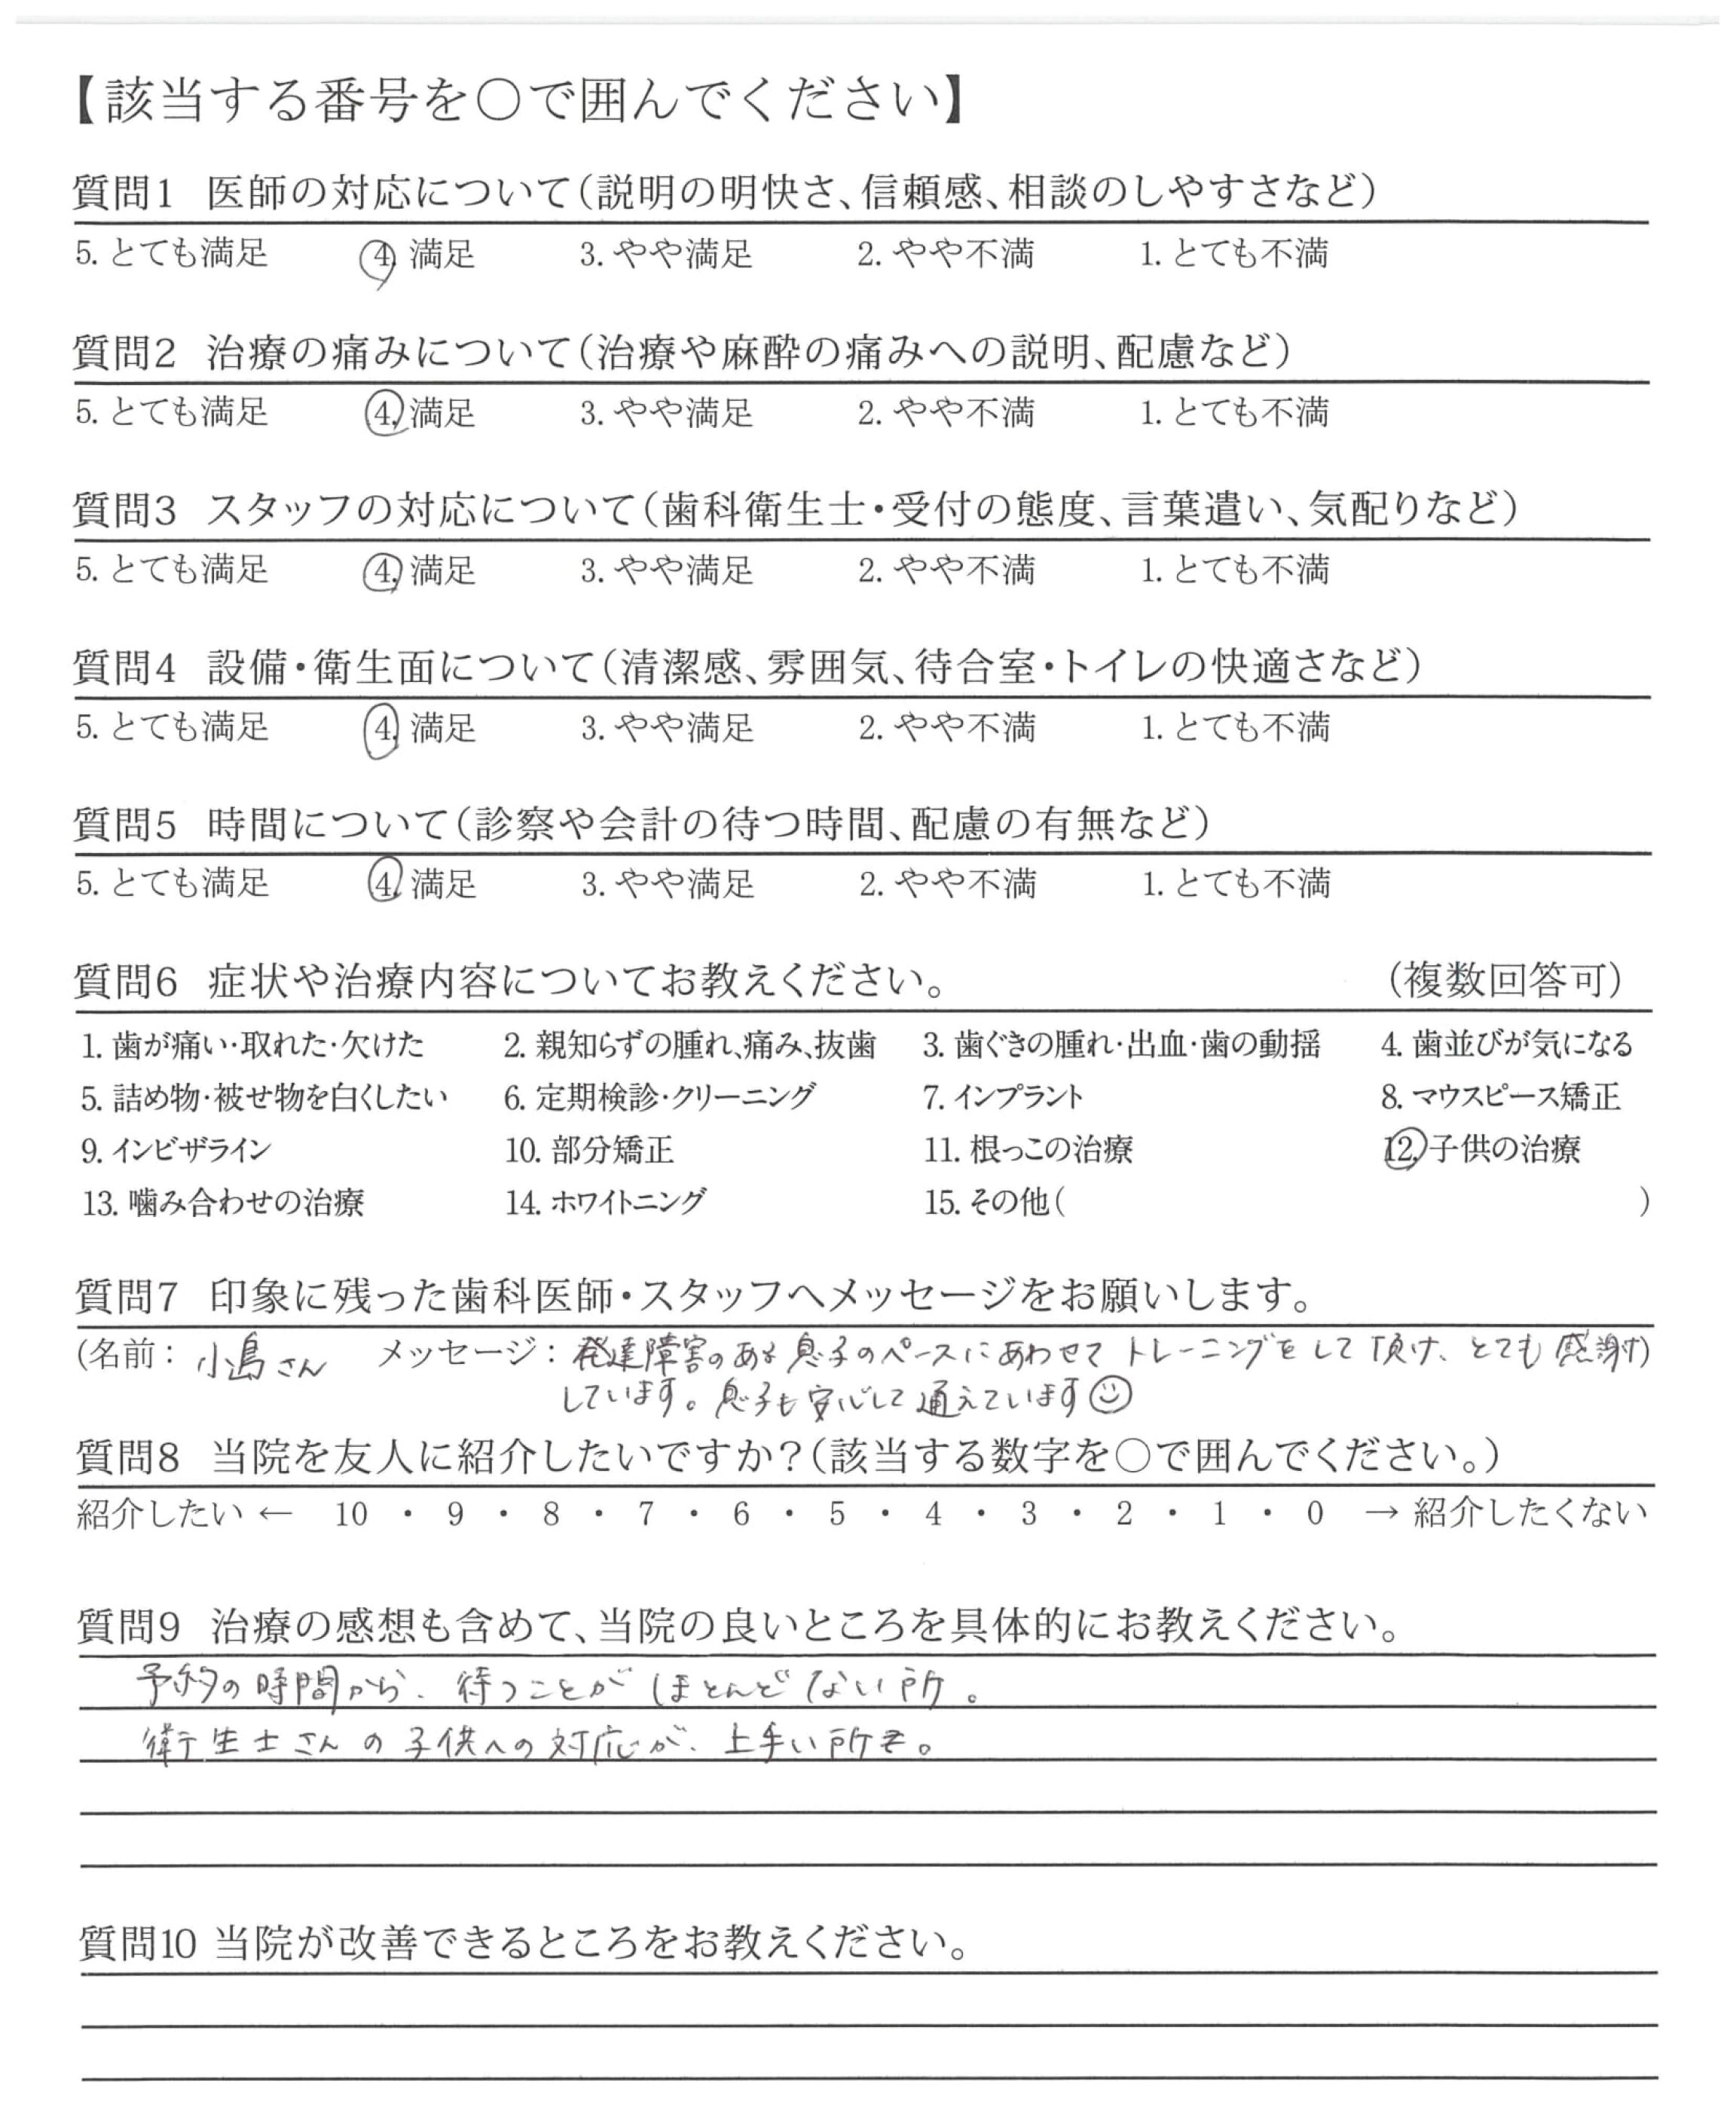 【該当する番号を〇で囲んでください】
質問1 医師の対応について(説明の明快さ、信頼感、相談のしやすさなど)
5. とても満足 4. 満足 3. やや満足 2. やや不満 1. とても不満
質問2 治療の痛みについて(治療や麻酔の痛みへの説明、配慮など)
5. とても満足 4. 満足 3. やや満足 2. やや不満 1. とても不満
質問3 スタッフの対応について(歯科衛生士・受付の態度、言葉遣い、気配りなど)
5. とても満足 4. 満足 3. やや満足 2. やや不満 1. とても不満
質問4 設備・衛生面について(清潔感、雰囲気、待合室・トイレの快適さなど)
5. とても満足 4. 満足 3. やや満足 2. やや不満 1. とても不満
質問5 時間について(診察や会計の待つ時間、配慮の有無など)
5. とても満足 4. 満足 3. やや満足 2. やや不満 1. とても不満
質問6 症状や治療内容についてお教えください。 (複数回答可)
1. 歯が痛い・取れた・欠けた 2. 親知らずの腫れ、痛み、抜歯 3. 歯ぐきの腫れ・出血・歯の動揺 4. 歯並びが気になる
5. 詰め物・被せ物を白くしたい 6. 定期検診・クリーニング 7. インプラント 8. マウスピース矯正
9. インビザライン 10. 部分矯正 11. 根っこの治療 12. 子供の治療
13. 噛み合わせの治療 14. ホワイトニング 15. その他( )
質問7 印象に残った歯科医師・スタッフへメッセージをお願いします。
(名前: 小島さん メッセージ: 発達障害のある息子のペースにあわせてトレーニングをして頂け、とても感謝)
しています。息子も安心して通えています☺
質問8 当院を友人に紹介したいですか?(該当する数字を〇で囲んでください。)
紹介したい ← 10 ・ 9 ・ 8 ・ 7 ・ 6 ・ 5 ・ 4 ・ 3 ・ 2 ・ 1 ・ 0 → 紹介したくない
質問9 治療の感想も含めて、当院の良いところを具体的にお教えください。
予約の時間から、待つことがほとんどない所。
衛生士さんの子供への対応が、上手い所も。
質問10 当院が改善できるところをお教えください。